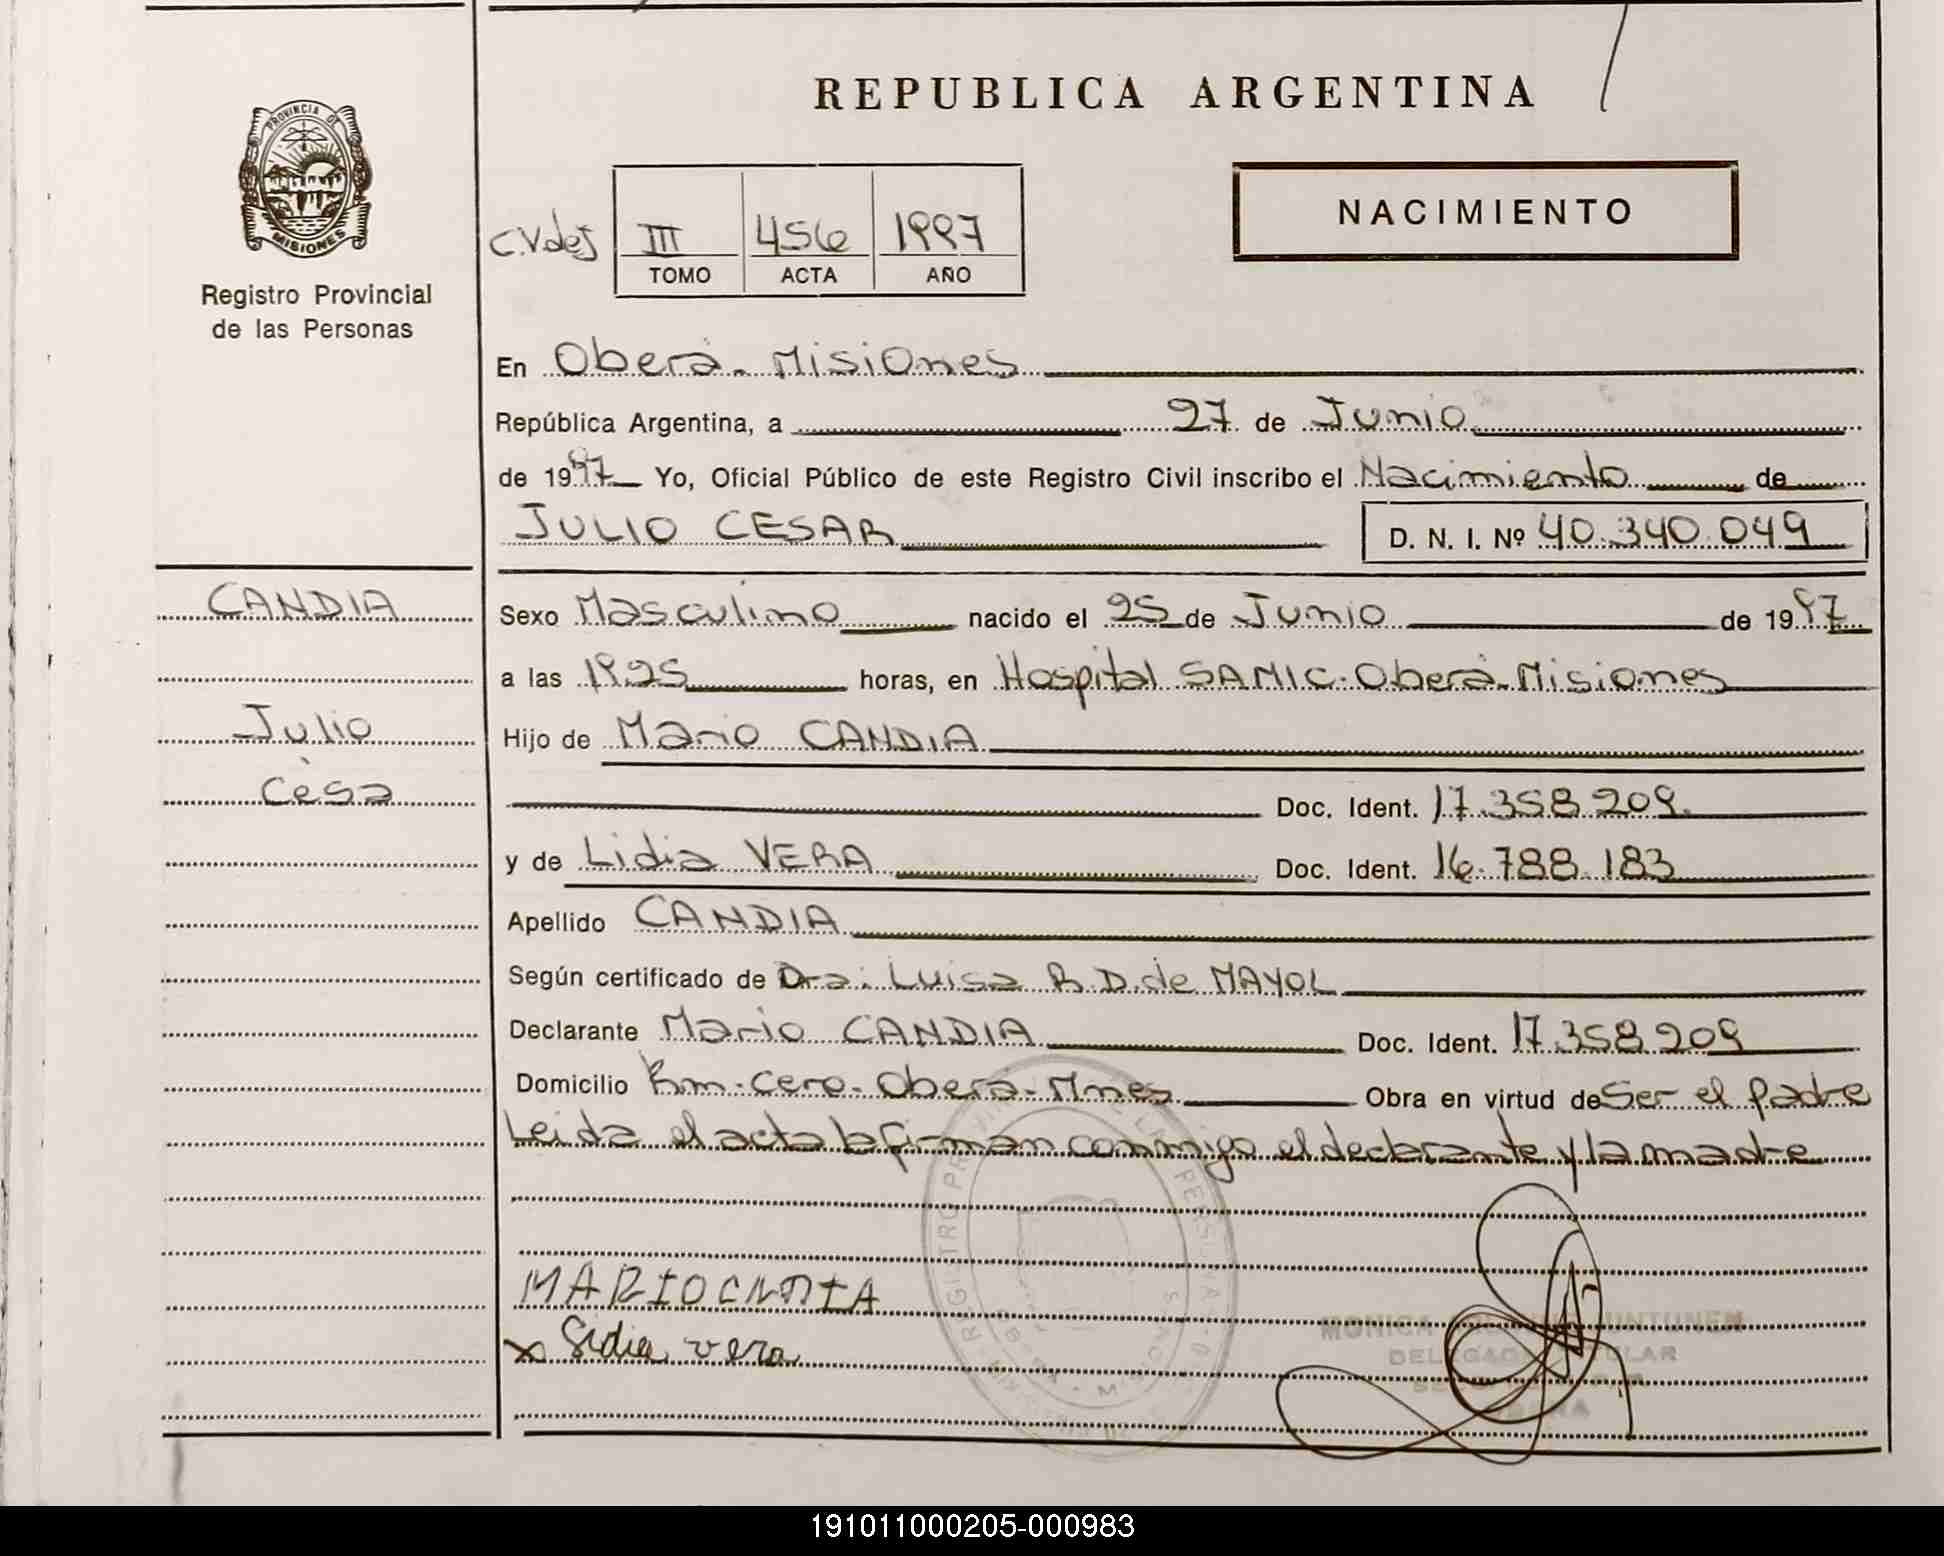 REPUBLICA ARGENTINA
PROVINCIA DE
MISIONES
Registro Provincial
de las Personas
C.VdeJ III 456 1997
TOMO ACTA AÑO
NACIMIENTO
En Oberá - Misiones
República Argentina, a 27 de Junio
de 1997 Yo, Oficial Público de este Registro Civil inscribo el Nacimiento de
JULIO CESAR D. N. I. Nº 40.340.049
CANDIA
Julio
Cèsa
Sexo Masculino nacido el 25 de Junio de 1997
a las 19.25 horas, en Hospital SAMIC - Oberá - Misiones
Hijo de Mario CANDIA
Doc. Ident. 17.358.209.
y de Lidia VERA Doc. Ident. 16.788.183
Apellido CANDIA
Según certificado de Dra: Luisa R.D. de MAYOL
Declarante Mario CANDIA Doc. Ident. 17.358.209
Domicilio Km - Cero - Oberá - Mnes Obra en virtud de Ser el padre
Leida el acta la firman conmigo el declarante y la madre
MARIO CNDIA
x Lidia vera
MONICA
191011000205-000983